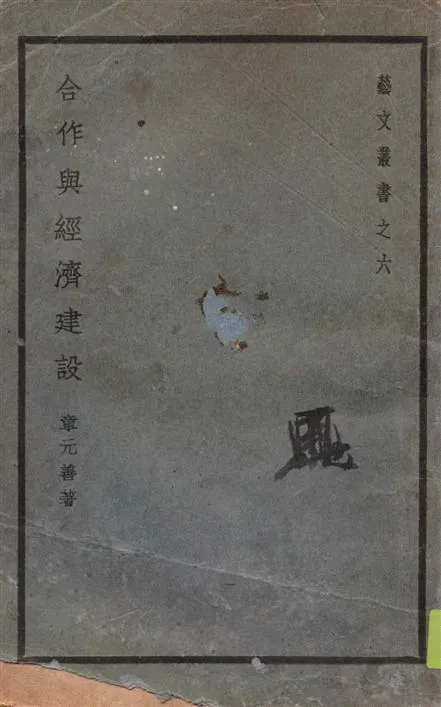 藝文叢書之六
合作與經濟建設
章元善著